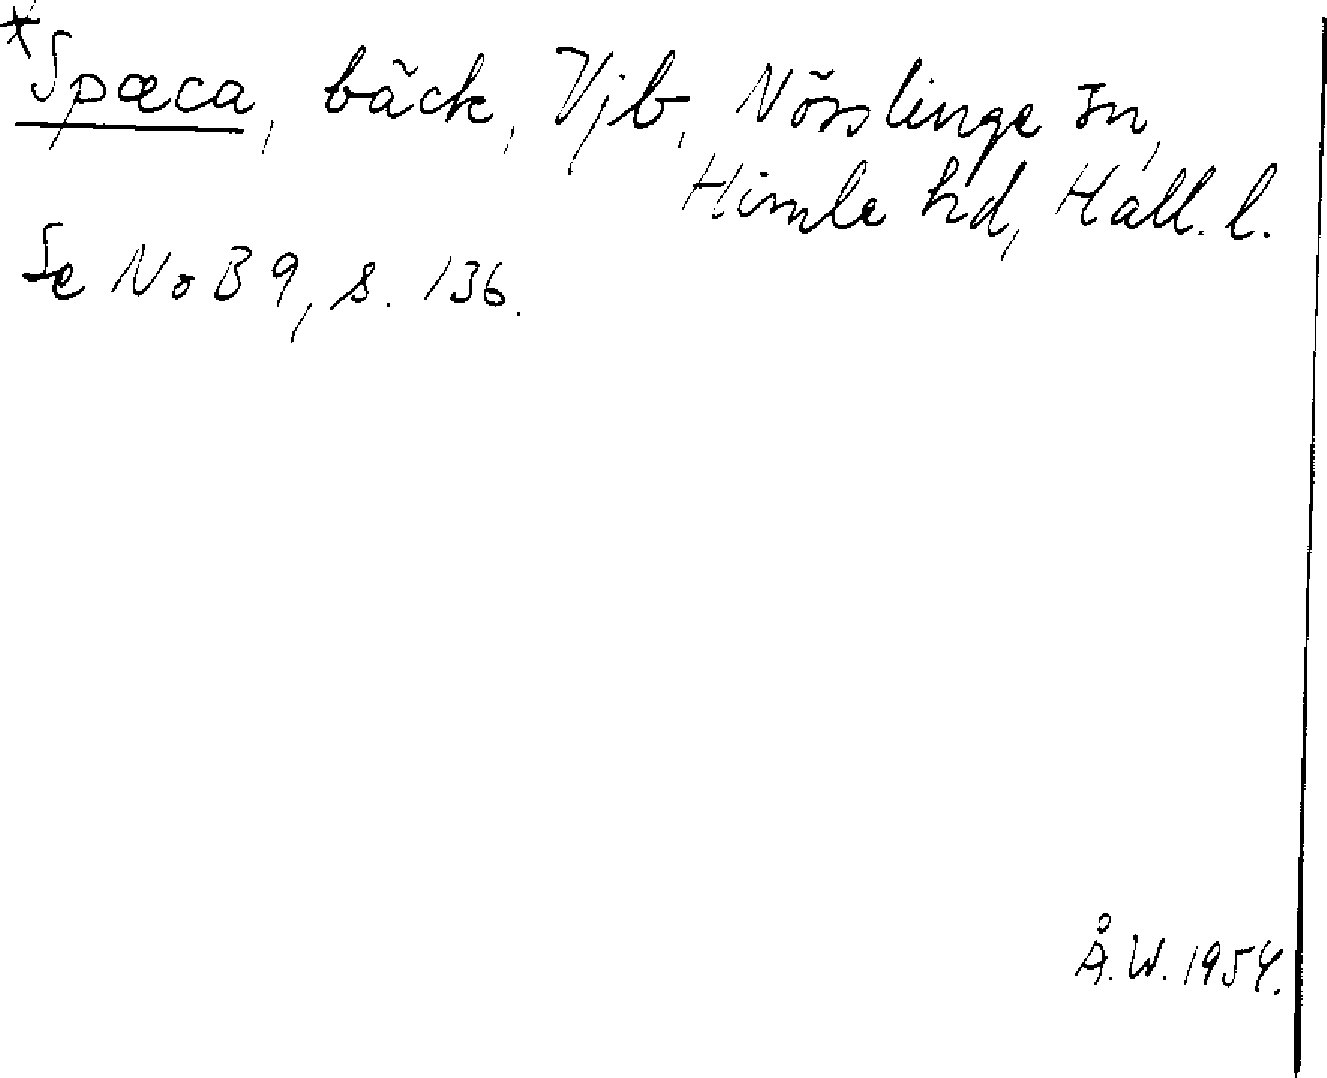 *Spæca, bäck, Vjb, Nösslinge sn,
Himle hd, Hall. l.
Se NoB 9, s. 136.
Å.W. 1954.